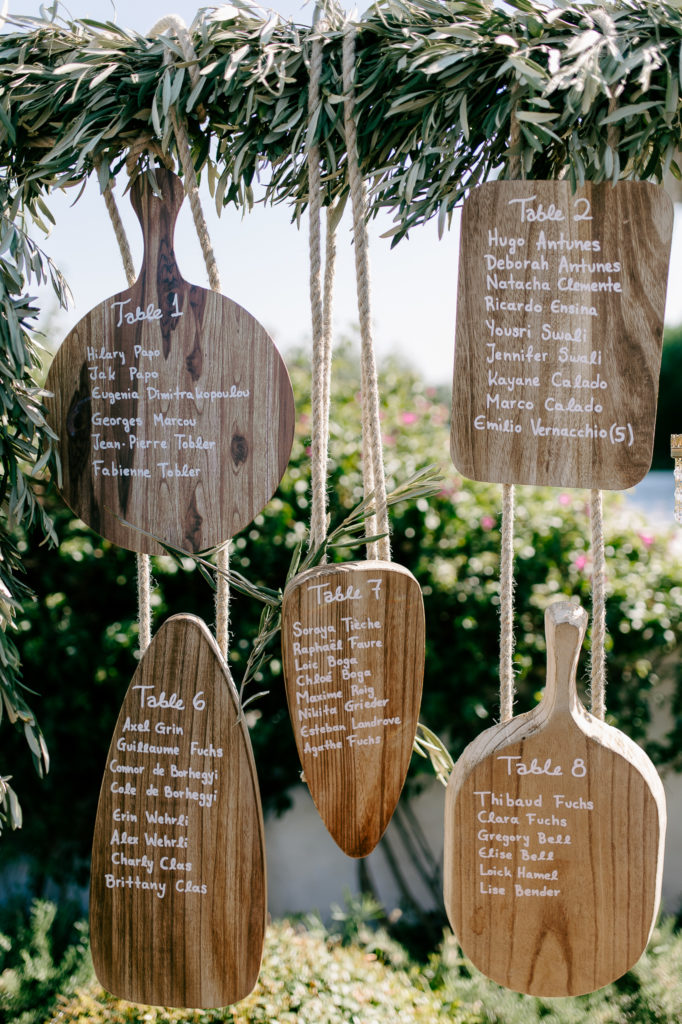 Table 1
Hilary Papo
Jak Papo
Eugenia Dimitrakopoulou
Georges Marcou
Jean-Pierre Tobler
Fabienne Tobler
Table 2
Hugo Antunes
Deborah Antunes
Natacha Clemente
Ricardo Ensina
Yousri Swali
Jennifer Swali
Kayane Calado
Marco Calado
Emilio Vernacchio(5)
Table 6
Axel Grin
Guillaume Fuchs
Connor de Borhegyi
Cole de Borhegyi
Erin Wehrli
Alex Wehrli
Charly Clas
Brittany Clas
Table 7
Soraya Tièche
Raphaël Faure
Loic Boga
Chloé Boga
Maxime Roig
Nikita Grieder
Esteban Landrove
Agathe Fuchs
Table 8
Thibaud Fuchs
Clara Fuchs
Gregory Bell
Elise Bell
Loick Hamel
Lise Bender